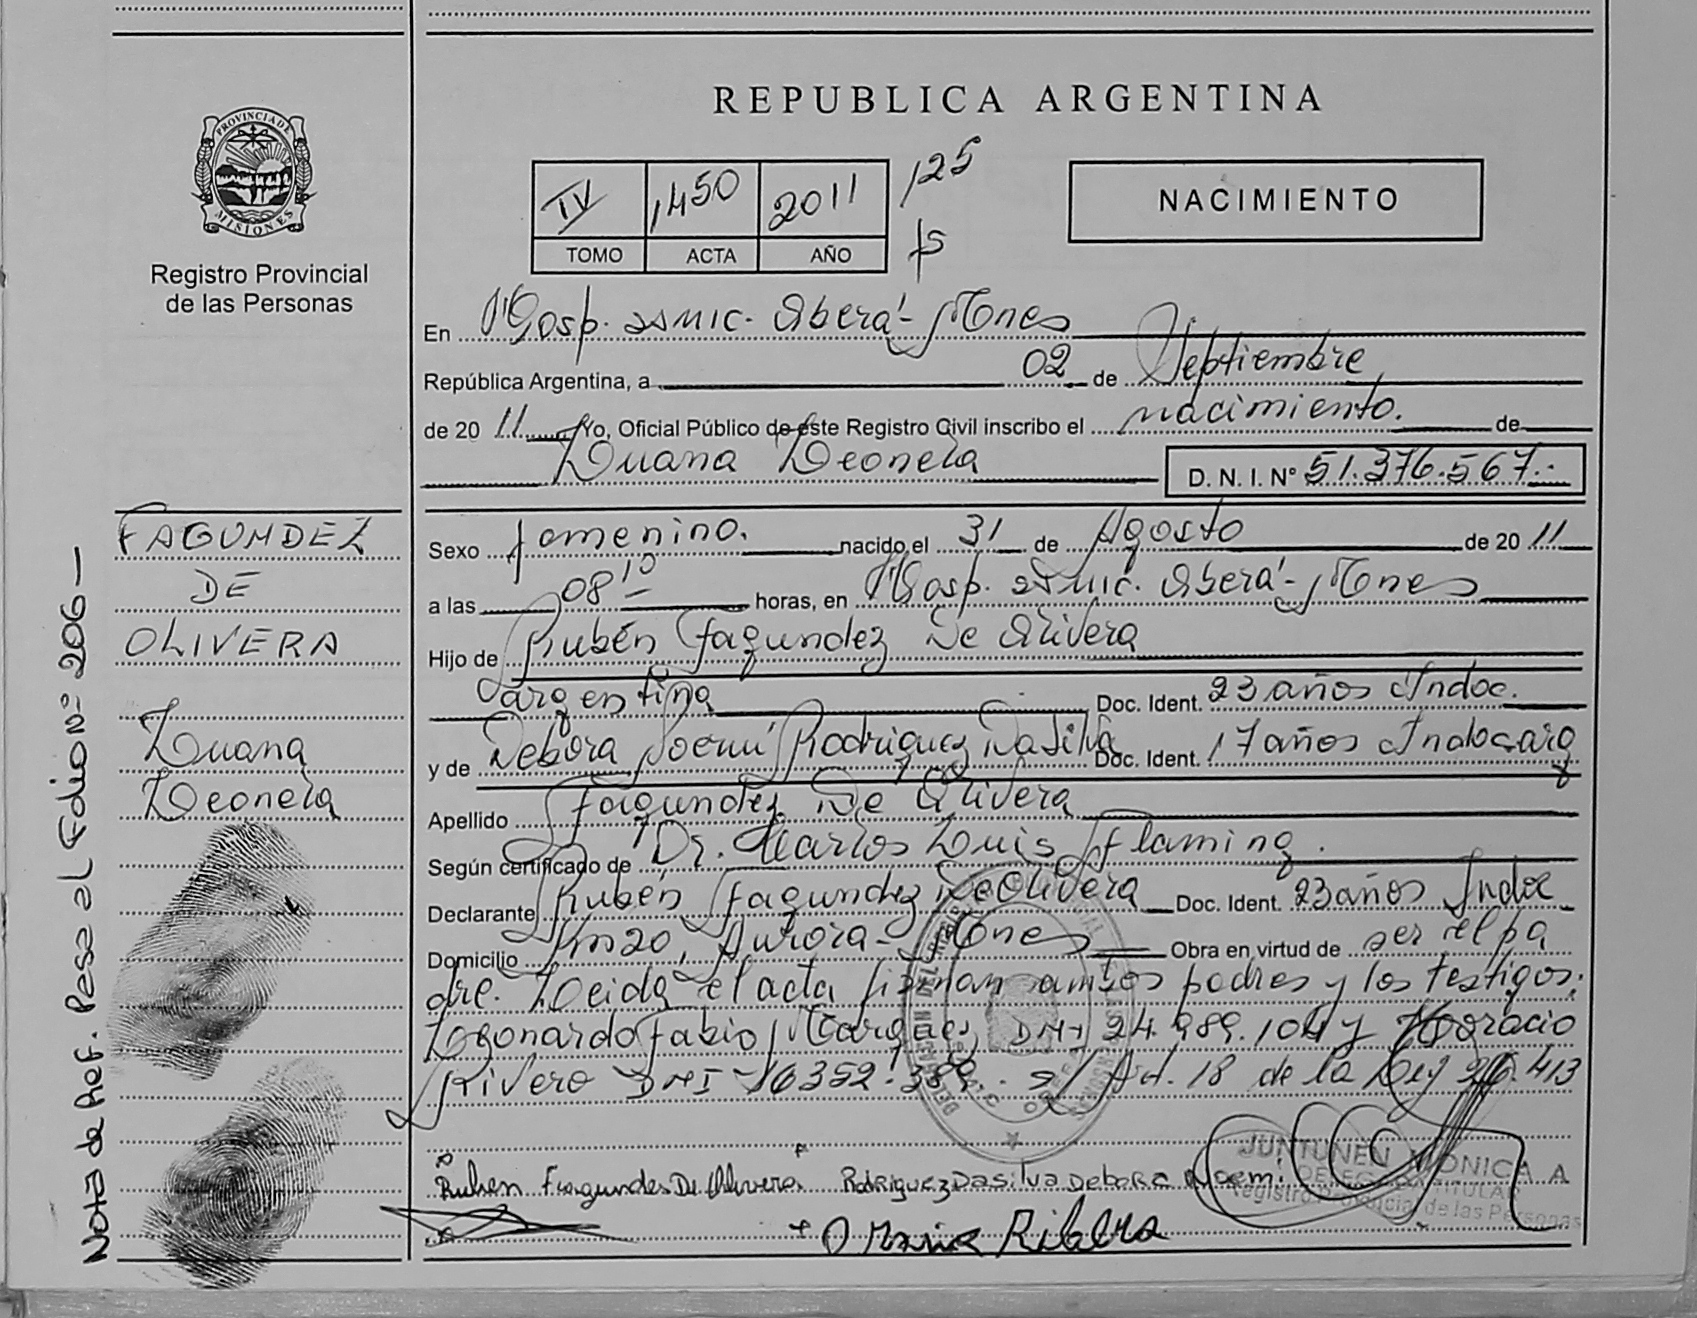 REPUBLICA ARGENTINA
PROVINCIA DE
MISIONES
Registro Provincial
de las Personas
IV 1450 2011 125
TOMO ACTA AÑO fs
NACIMIENTO
En Hosp. SAMIC. Oberá - Mnes
República Argentina, a 02 de Septiembre
de 20 11 Yo, Oficial Público de este Registro Civil inscribo el nacimiento. de
Luana Leonela D. N. I. Nº 51.376.567.-
Sexo femenino. nacido el 31 de Agosto de 20 11
a las 08 10 horas, en Hosp. SAMIC. Oberá - Mnes
Hijo de Rubén Fagundez De Olivera
argentina Doc. Ident. 23 años Indoc.
y de Debora Noemí Rodriguez Da Silva Doc. Ident. 17 años Indoc arg
Apellido Fagundez De Olivera
Según certificado de Dr. Carlos Luis Flaming.
Declarante Rubén Fagundez De Olivera Doc. Ident. 23 años Indoc
Domicilio Km 20, Aurora - Mnes Obra en virtud de ser el pa
dre. Leida el acta firman ambos padres y los testigos:
Fabio DNI 24.989.104 y Horacio
Rivero DNI 16352.389. s/ Art. 18 de la Ley 26.413
FAGUNDEZ
DE
OLIVERA
Luana
Leonela
Nota de Ref. Pasa al Folio Nº 206 —
Ruben Fagundes De Olivera Rodriguez Dasilva Debora Noemi
JUNTUNEN MONICA A
DELEGADA TITULAR
Registro Provincial de las Personas